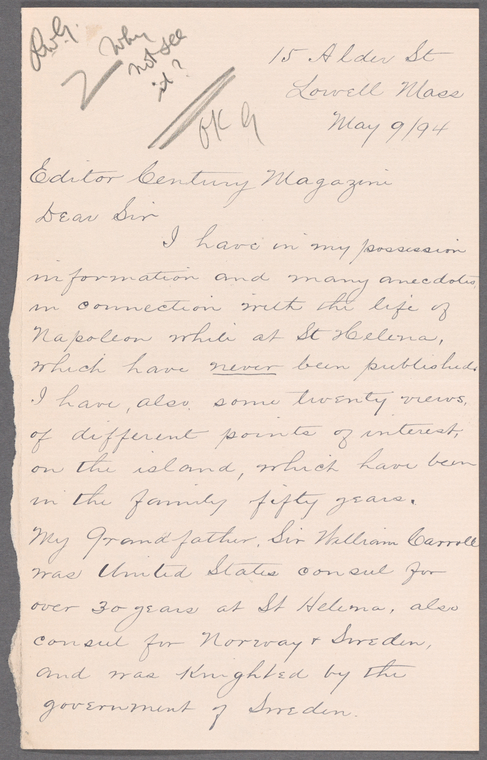 R.W.G.
Why
not see
it?
OK G
15 Alder St
Lowell Mass
May 9/94
Editor Century Magazine
Dear Sir
I have in my possession
information and many anecdotes
in connection with the life of
Napoleon while at St Helena,
which have never been published.
I have, also, some twenty views,
of different points of interest,
on the island, which have been
in the family fifty years.
My Grandfather, Sir William Carroll
was United States consul for
over 30 years at St Helena, also
consul for Norway & Sweden,
and was Knighted by the
government of Sweden.